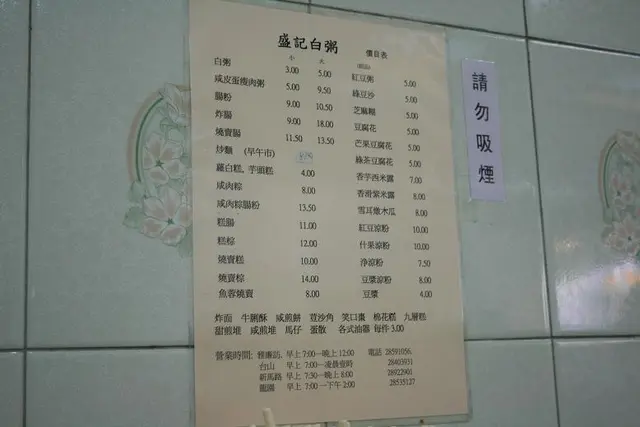 盛記白粥 價目表
小 大
白粥 3.00 5.00
咸皮蛋瘦肉粥 5.00 9.50
腸粉 9.00 10.50
炸腸 9.00 18.00
燒賣腸 11.50 13.50
炒麵 (早午市)
蘿白糕、芋頭糕 4.00
咸肉粽 8.00
咸肉粽腸粉 13.50
糕腸 11.00
糕粽 12.00
燒賣糕 10.00
燒賣粽 14.00
魚蓉燒賣 8.00
紅豆粥 5.00
綠豆沙 5.00
芝麻糊 5.00
豆腐花 5.00
芒果豆腐花 5.00
綠茶豆腐花 5.00
香芋西米露 7.00
香滑紫米露 8.00
雪耳燉木瓜 8.00
紅豆涼粉 10.00
什果涼粉 10.00
淨涼粉 7.50
豆漿涼粉 8.00
豆漿 4.00
炸面 牛脷酥 咸煎餅 荳沙角 笑口棗 棉花糕 九層糕
甜煎堆 咸煎堆 馬仔 蛋散 各式油器 每件 3.00
營業時間: 雅廉訪, 早上 7:00一晚上 12:00 電話 28591056,
台山 早上 7:00一凌晨壹時 28403931
新馬路 早上 7:30一晚上 8:00 28922901
龍園 早上 7:00一下午 2:00 28535127
請勿吸煙